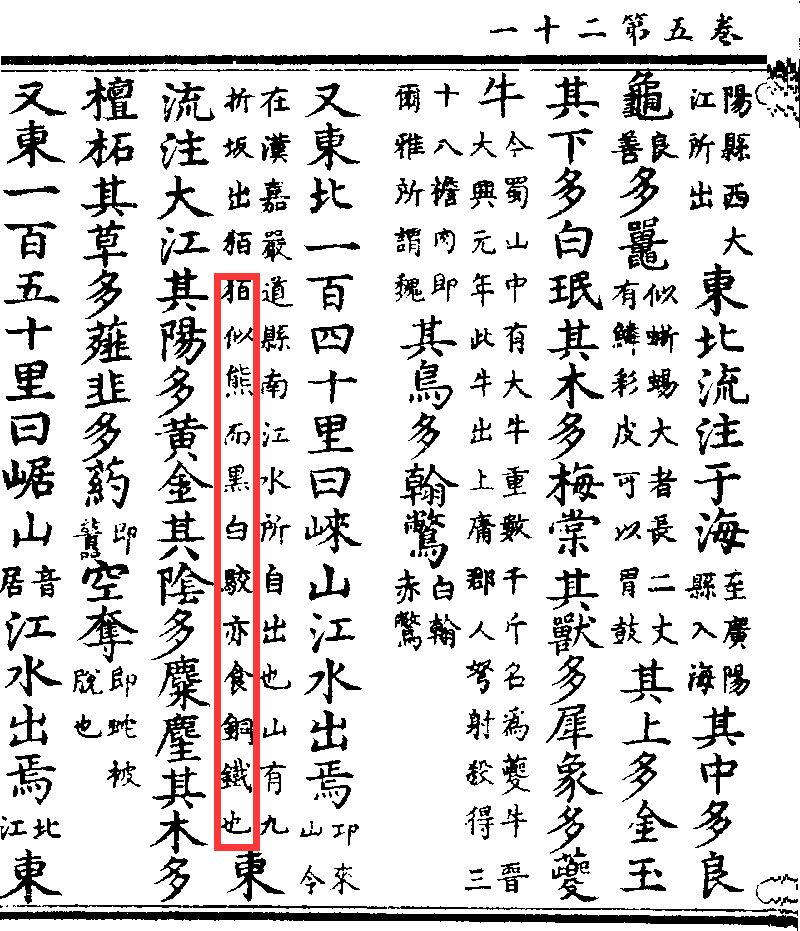 卷五第二十一
陽縣西大江所出東北流注于海至廣陽縣入海其中多良
龜良善多鼉似蜥蜴大者長二丈有鱗彩皮可以冒鼓其上多金玉
其下多白珉其木多梅棠其獸多犀象多夔
牛今蜀山中有大牛重數千斤名為夔牛晉大興元年此牛出上庸郡人弩射殺得三
十八檐肉即爾雅所謂魏其鳥多翰鷩白翰赤鷩
又東北一百四十里曰崍山江水出焉邛來山今
在漢嘉嚴道縣南江水所自出也山有九折坂出狛狛似熊而黑白駮亦食銅鐵也東
流注大江其陽多黃金其陰多麋麈其木多
檀柘其草多薤韭多葯即虈空奪即蛇被脫也
又東一百五十里曰崌山音居江水出焉北江東